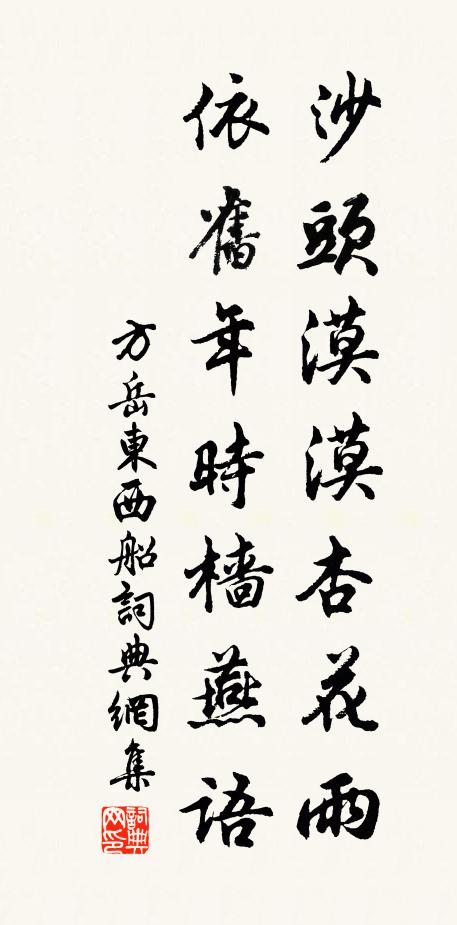 沙頭漠漠杏花雨
依舊年時檣燕語
方岳東西船詞典網集
詞典網印